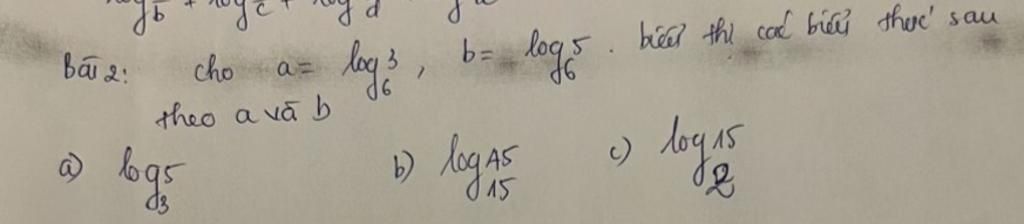 log b + log c + log d
Bài 2: cho a = log₆3, b = log₆5. biểu thị các biểu thức sau
theo a và b
a) log₃5 b) log₁₅15 c) log₂15